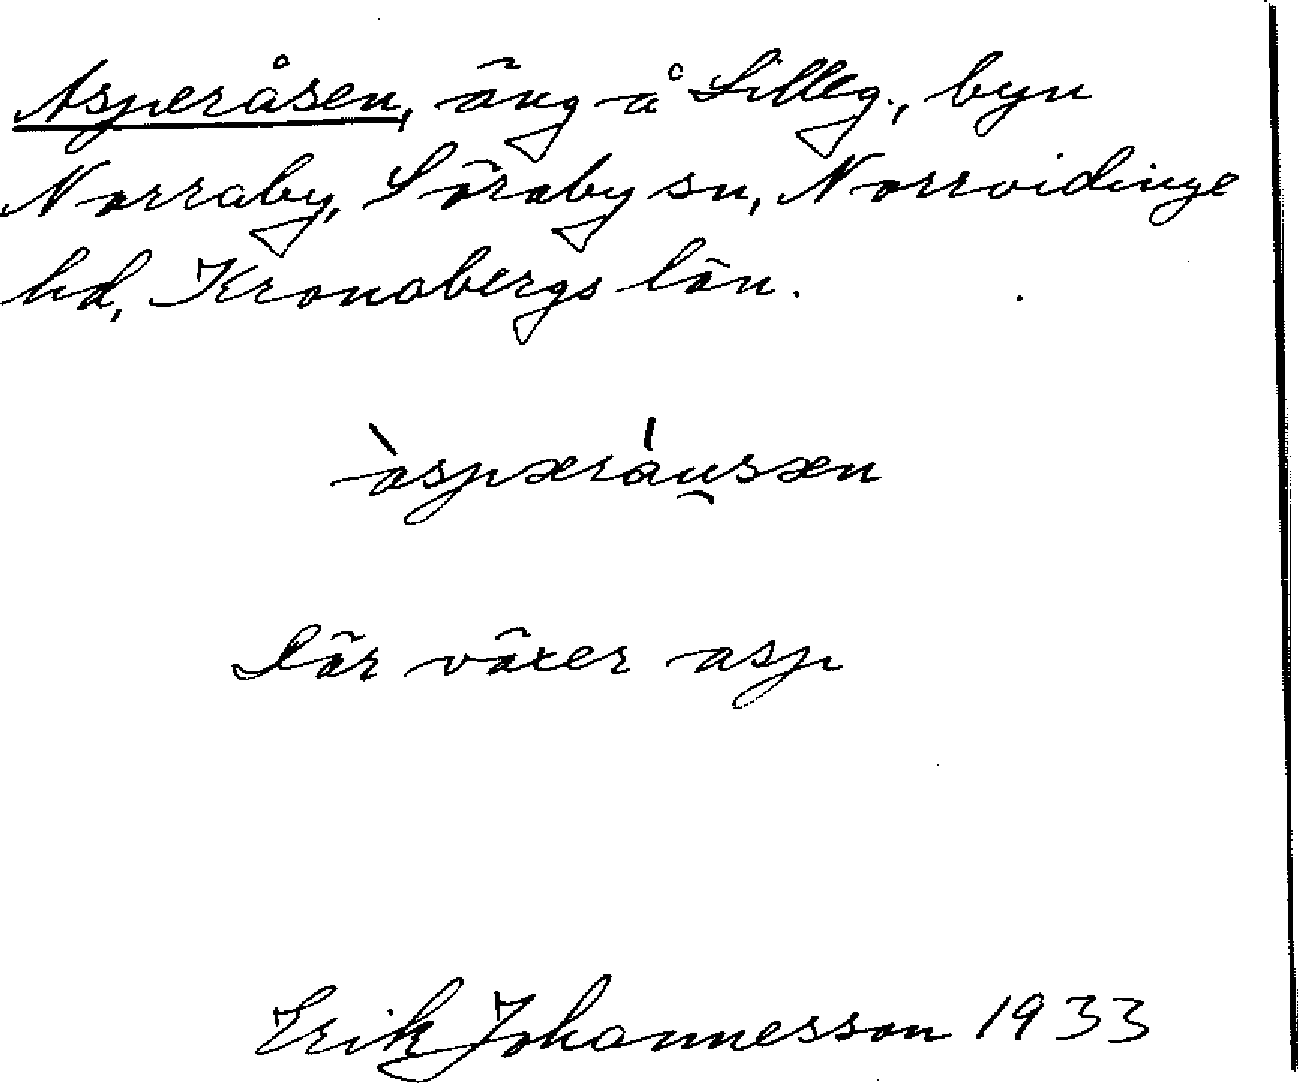 Asperåsen, äng å Lilleg., byn
Norraby, Söraby sn, Norrvidinge
hd, Kronobergs län.
àspæráu̯sæn
Där växer asp
Erik Johannesson 1933